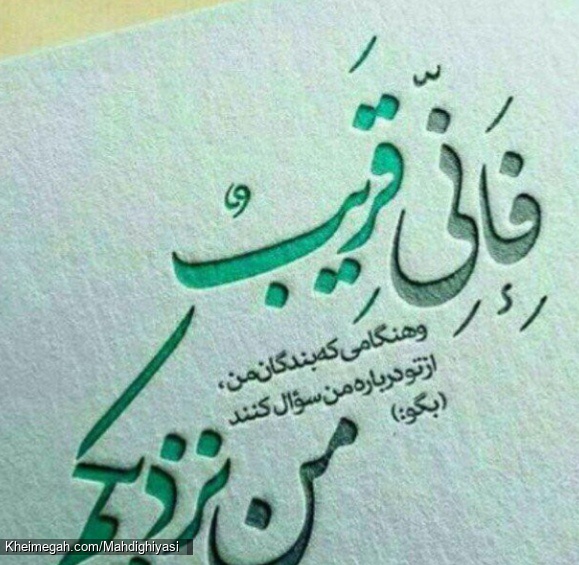 فَإِنِّی قَرِیبٌ
وهنگامی که بندگان من،
از تو درباره من سؤال کنند
(بگو:)
من نزدیکم
Kheimegah.com/Mahdighiyasi